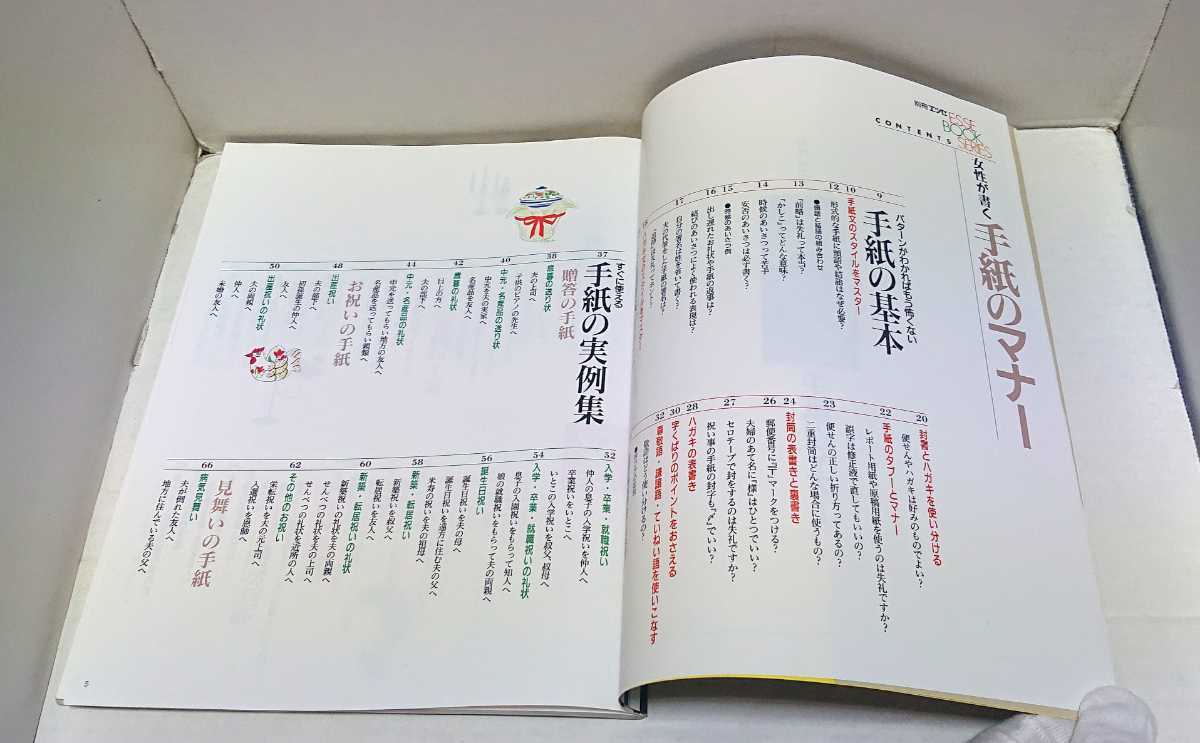 別冊エッセ
ESSE
BOOK
SERIES
CONTENTS
女性が書く
手紙のマナー
パターンがわかればもう怖くない
9
手紙の基本
10
手紙文のスタイルをマスター
12
形式的な手紙に頭語や結語はなぜ必要?
●頭語と結語の組み合わせ
13
「前略」は失礼って本当?
「かしこ」ってどんな意味?
14
時候のあいさつって苦手
安否のあいさつは必ず書く?
15
●時候のあいさつ例
16
出し遅れたお礼状や手紙の返事は?
結びのあいさつによく使われる表現は?
17
自分の署名は姓を書いて書く?
夫の代筆をした手紙の署名は?
20
封書とハガキを使い分ける
便せんやハガキは好みのものでよい?
22
手紙のタブーとマナー
レポート用紙や原稿用紙を使うのは失礼ですか?
誤字は修正液で直してもいいの?
23
便せんの正しい折り方ってあるの?
二重封筒はどんな場合に使うもの?
24
封筒の表書きと裏書き
26
郵便番号に「〒」マークをつける?
夫婦のあて名に「様」はひとつでいい?
27
セロテープで封をするのは失礼ですか?
祝い事の手紙の封字も「〆」でいい?
28
ハガキの表書き
30
字くばりのポイントをおさえる
32
尊敬語・謙譲語・ていねい語を使いこなす
敬語はどう使い分けるの?
37
すぐに使える
手紙の実例集
贈答の手紙
38
歳暮の送り状
夫の上司へ
子供のピアノの先生へ
40
中元・名産品の送り状
中元を夫の実家へ
名産品を友人へ
42
歳暮の礼状
目上の方へ
夫の部下へ
44
中元・名産品の礼状
中元を送ってもらい地方の友人へ
名産品を送ってもらい親類へ
お祝いの手紙
48
出産祝い
夫の部下へ
初孫誕生の仲人へ
友人へ
50
出産祝いの礼状
夫の両親へ
仲人へ
未婚の友人へ
52
入学・卒業・就職祝い
仲人の息子の入学祝いを仲人へ
卒業祝いをいとこへ
いとこの入学祝いを叔父、叔母へ
54
入学・卒業・就職祝いの礼状
息子の入園祝いをもらって知人へ
娘の就職祝いをもらって夫の両親へ
56
誕生日祝い
誕生日祝いを夫の母へ
誕生日祝いを遠方に住む夫の父へ
58
米寿の祝いを夫の祖母へ
新築・転居祝い
新築祝いを叔父へ
転居祝いを友人へ
60
新築・転居祝いの礼状
新築祝いの礼状を夫の両親へ
せんべつの礼状を夫の上司へ
せんべつの礼状を近所の人へ
62
その他のお祝い
栄転祝いを夫の元上司へ
入選祝いを恩師へ
見舞いの手紙
66
病気見舞い
夫が倒れた友人へ
地方に住んでいる夫の父へ
5